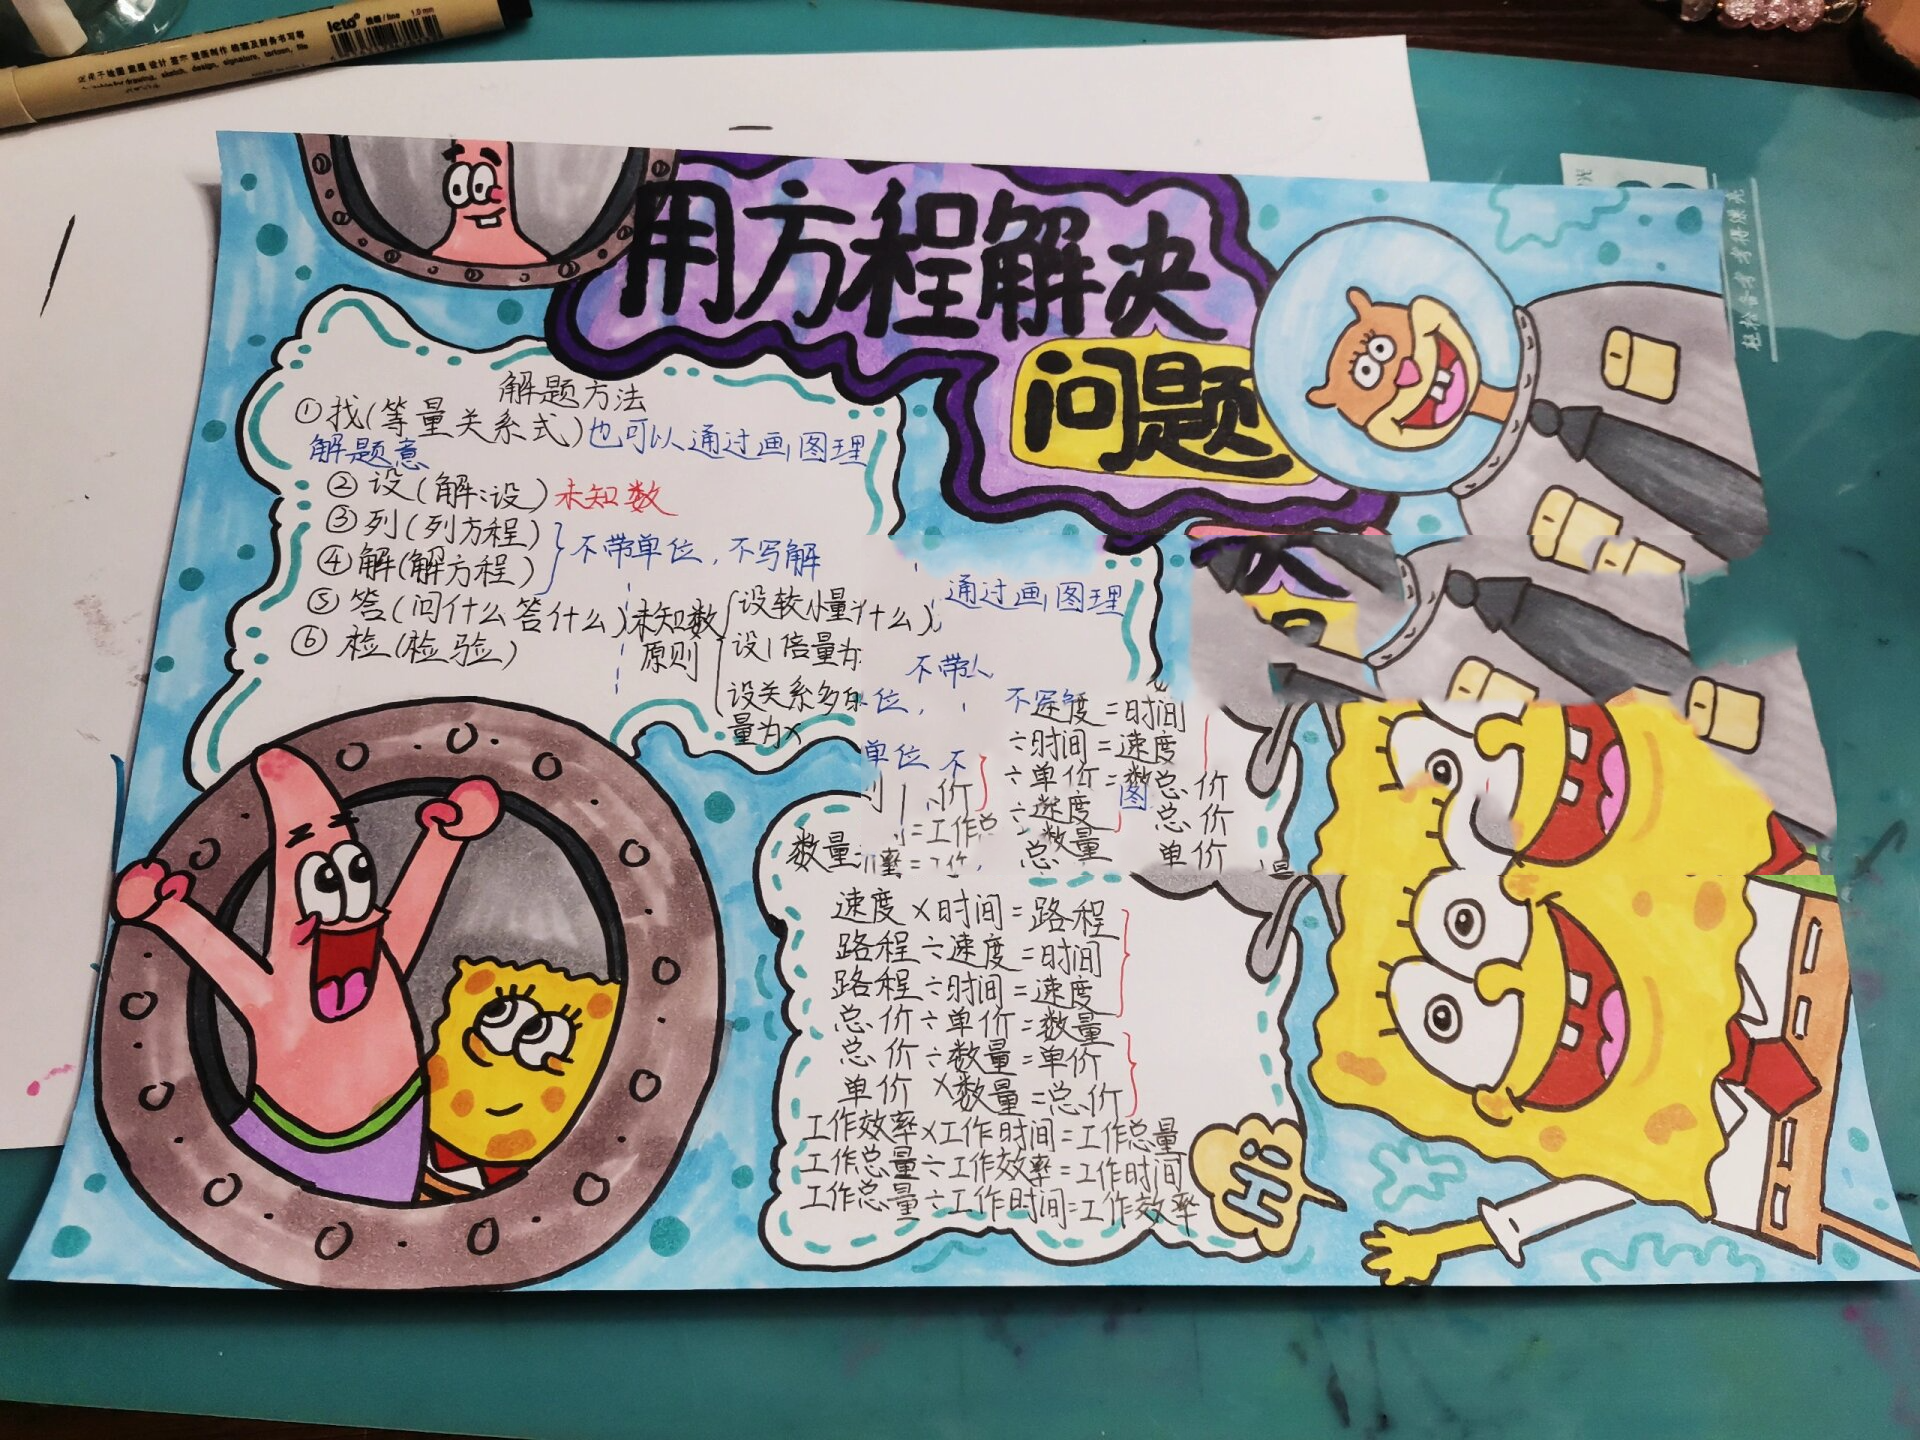 leto
用方程解决
问题
解题方法
①找(等量关系式)也可以通过画图理
解题意
②设(解:设)未知数
③列(列方程)
④解(解方程)
不带单位,不写解
⑤答(问什么答什么)
⑥检(检验)
未知数
原则
设较小量
什么)
设1倍量为
设关系多
量为x
通过画图理
不带
位,
单位 不
速度=时间
÷时间=速度
÷单价=数
总价
÷速度
总价
数量
单价
数量
速度×时间=路程
路程÷速度=时间
路程÷时间=速度
总价÷单价=数量
总价÷数量=单价
单价×数量=总价
工作效率×工作时间=工作总量
工作总量÷工作效率=工作时间
工作总量÷工作时间=工作效率
Hi